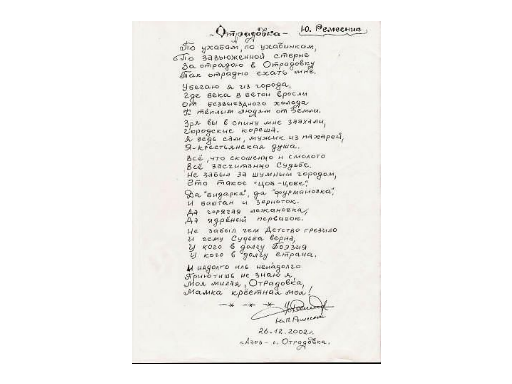 Ю. Ремесник
„Отрадовка“
По ухабам, по ухабинкам,
По завьюженной стерне
За отрадою в Отрадовку
Так отрадно ехать мне.
Убегаю я из города,
Где века в бетон вросли
От беззвёздного холода
К тёплым людям от земли.
Зря вы в спину мне
Городские кореша.
Я ведь сам, мужик из пахарей,
Я-крестьянская душа.
Всё, что скошенно и смолото
Всё засчитанно Судьбе.
Не забыл за шумным городом,
Что такое "цоб-цобе".
Да "бидарка", да "фурманювка",
И баштан и зерноток.
Да горячая лежановка,
Да ядрёный первачок.
Не забыл чем Детство грезило
И чему Судьба верна,
У кого в долгу Поэзия
У кого в долгу страна.
И надолго иль ненадолго
Приютишь не знаю я
Моя милая, Отрадовка,
Мамка крёстная моя!
26.12.2002г.
Азов - с. Отрадовка.